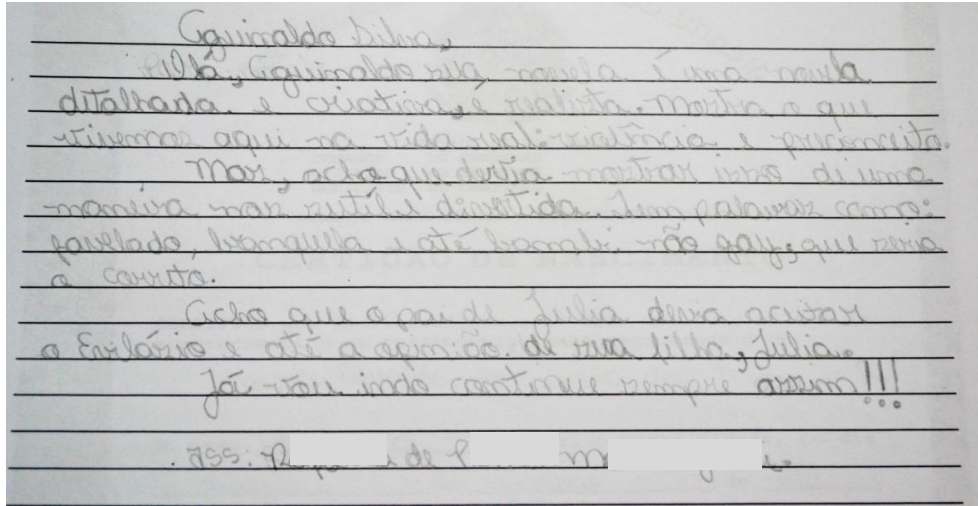 Aguinaldo Silva,
Olá, Aguinaldo sua novela é uma novela
ditalhada e criativa, é realista. Mostra o que
vivemos aqui na vida real: violência e preconceito.
Mas, acho que deria mostrar isso di uma
maneira mas sutil é divertida. Sem palavras como:
favelado, branquela e até bambi não gay, que seria
o corrito.
Acho que o pai de Julia devia aceitar
o Evilázio e até a opinião de sua filha, Julia.
Já vou indo continue sempre assim!!!
ass: de